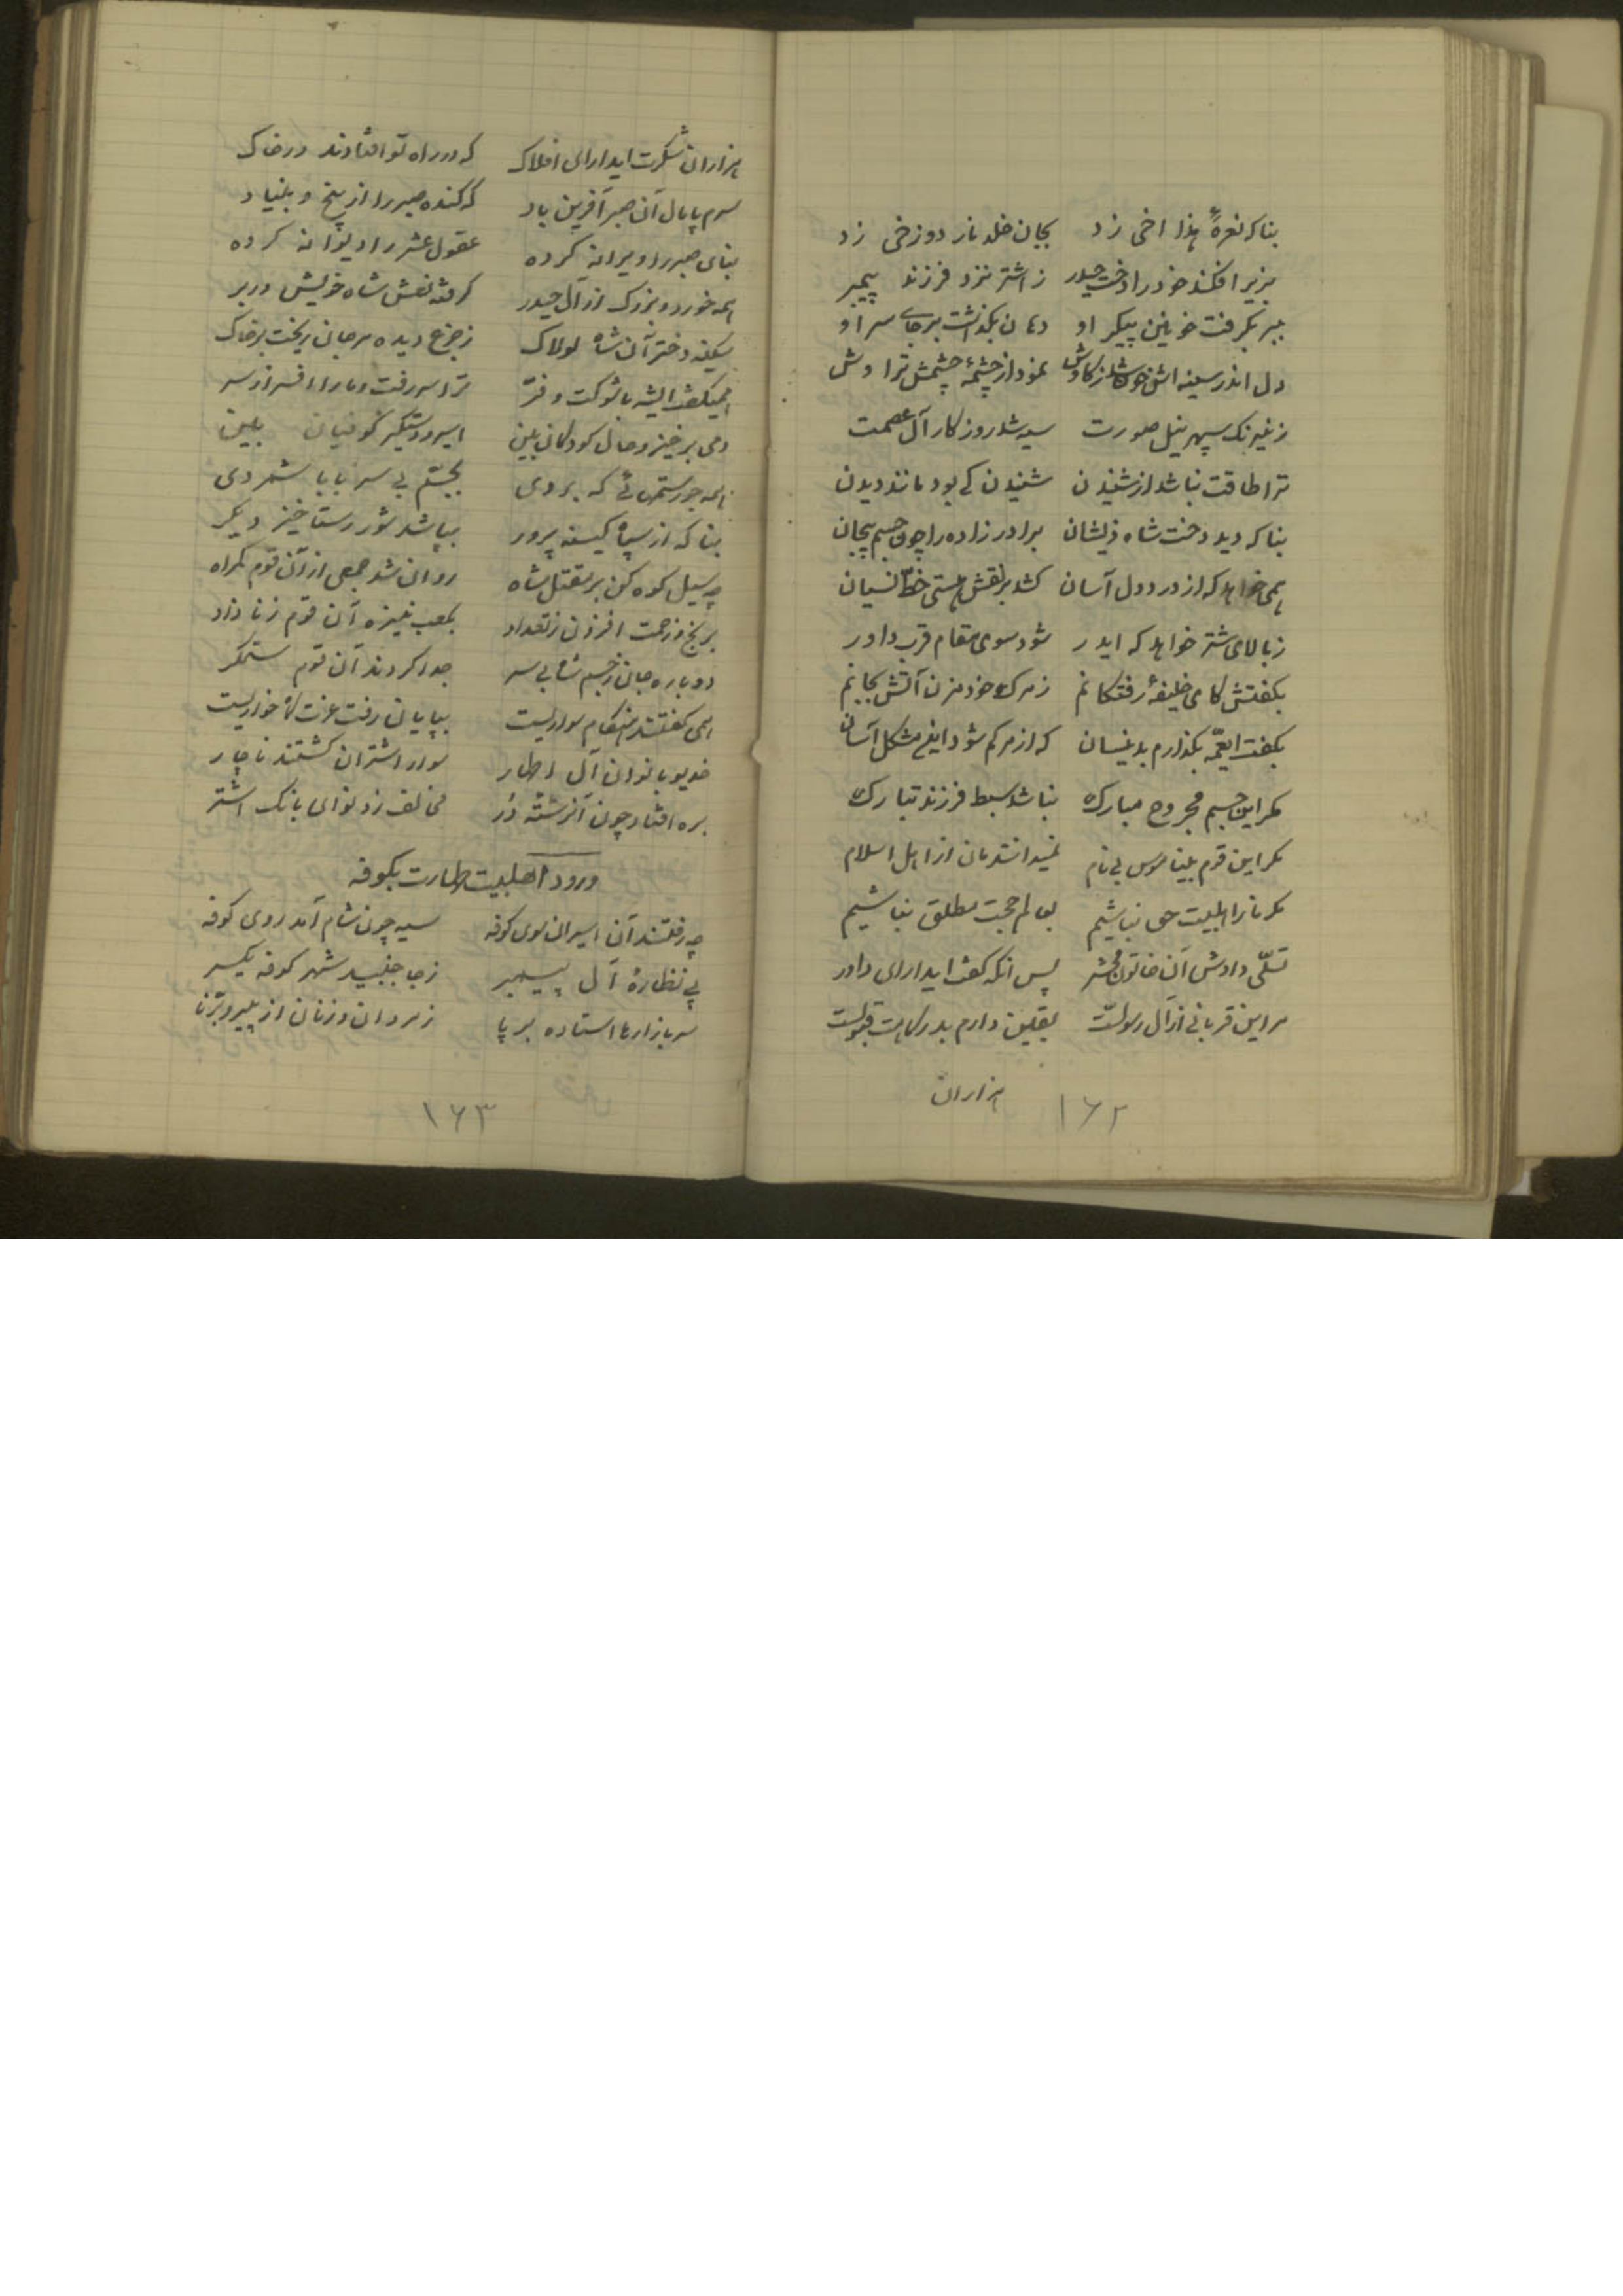 بناکه نعرهٔ هذا اخی زد بجان خلد نار دوزخی زد
بزیر افکند خود را دخت حیدر ز اشتر نزد فرزند پیمبر
ببر بگرفت خونین پیکر او دهان بگذاشت برجای سر او
دل اندر سینه اش خون شد ز کاوش نمود از چشمهٔ چشمش تراوش
ز نیرنگ سپهر نیل صورت سیه شد روزکار آل عصمت
ترا طاقت نباشد از شنیدن شنیدن کی بود مانند دیدن
بناکه دید دخت شاه ذیشان برادرزاده را چون جسم بیجان
همی خواهد که از درد دل آسان کشد بر نقش هستی خطّ نسیان
ز بالای شتر خواهد که ایدر شود سوی مقام قرب داور
بکفتش کای خلیفهٔ رفتکانم ز مرک خود مزن آتش بجانم
بکفت ایعمّه بکذارم بدینسان که از مرکم شود این مشکل آسان
مکر این جسم مجروح مبارک نباشد سبط فرزند تبارک
مکر این قوم بیناموس بی نام نمیدانندمان از اهل اسلام
مکر ما را اهلبیت حق نباشیم بعالم حجت مطلق نباشیم
تسلّی دادش آن خاتون محشر پس انکه کفت ایدارای داور
مر این قربانی از آل رسولت یقین دارم بدرکاهت قبولست
هزاران
۱۶۲
هزاران شکرت ایدارای افلاک که در راه تو افتادند در خاک
سرم پامال آن صبر آفرین باد که کنده صبر را از بیخ و بنیاد
بنای صبر را ویرانه کرده عقول عشر را دیوانه کرده
همه خورد و بزرک از آل حیدر کرفته نعش شاه خویش در بر
سکینه دختر آن شاه لولاک ز جزع دیده مرجان ریخت بر خاک
همیکفت ایشه با شوکت و فرّ ترا سر رفت و ما را افسر از سر
دمی برخیز و حال کودکان بین اسیر و دستکیر کوفیان بین
همه جور ستمهائی که بردی بجسم بی سر بابا شمردی
بناکه از سپاه کینه پرور بپا شد شور رستاخیز دیکر
چه سیل کوه کن بر مقتل شاه روان شد جمعی از آن قوم کمراه
برنج و زحمت افزون ز تعداد بکعب نیزه آن قوم زنازاد
دوباره جان ز جسم شاه بی سر جدا کردند آن قوم ستمکر
همی کفتند هنکام سواریست بپایان رفت عزت کاه خواریست
خدیو بانوان آل اطهار سوار اشتران کشتند ناچار
بره افتاد چون آن رشتهٔ دُر مخالف زد نوای بانک اشتر
ورود اهلبیت طهارت بکوفه
چه رفتند آن اسیران سوی کوفه سیه چون شام آمد روی کوفه
پی نظارهٔ آل پیمبر ز جا جنبید شهر کوفه یکسر
سر بازارها استاده بر پا ز مردان و زنان از پیر و برنا
۱۶۳